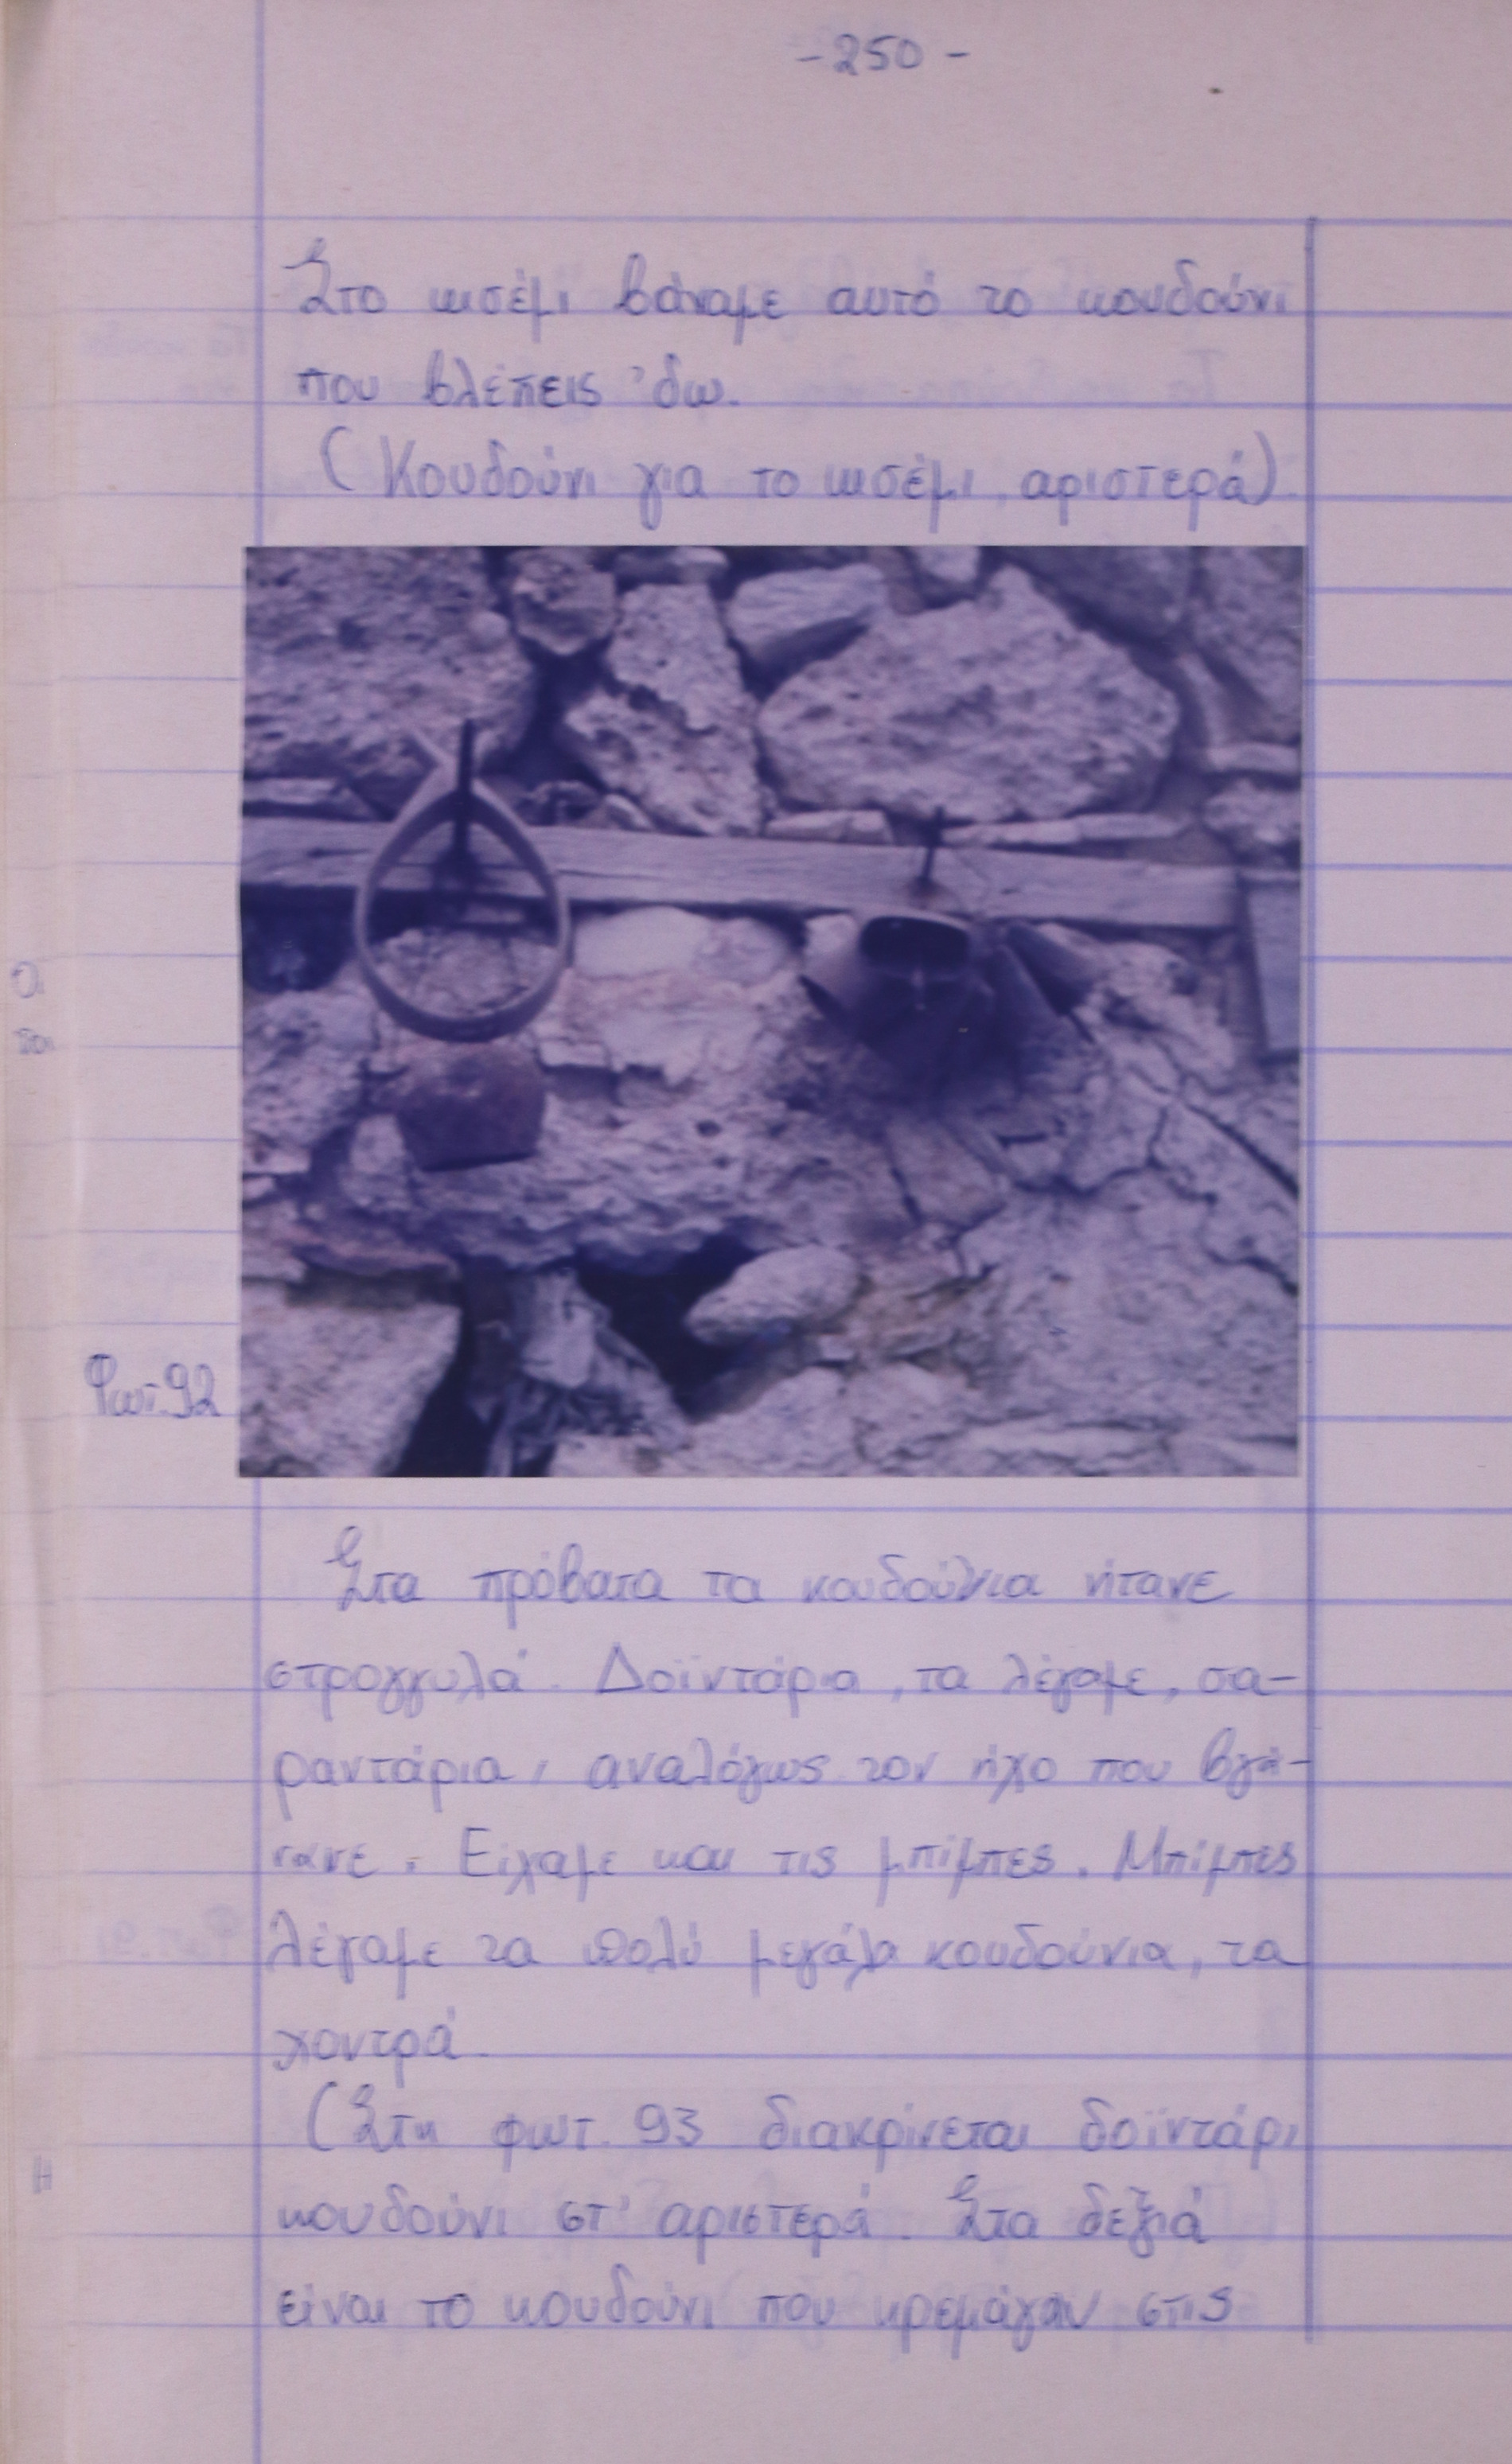 -250-
Στο κισέμι βάναμε αυτό το κουδούνι
που βλέπεις 'δω.
(Κουδούνι για το κισέμι, αριστερά)
Φωτ.92
Στα πρόβατα τα κουδούνια ήτανε
στρογγυλά. Δοϊντάρια, τα λέγαμε, σα-
ραντάρια, αναλόγως τον ήχο που βγά-
νανε. Είχαμε και τις μπίμπες. Μπίμπες
λέγαμε τα πολύ μεγάλα κουδούνια, τα
χοντρά.
(Στη φωτ. 93 διακρίνεται δοϊντάρι
κουδούνι στ' αριστερά. Στα δεξιά
είναι το κουδούνι που κρεμάγαν στις